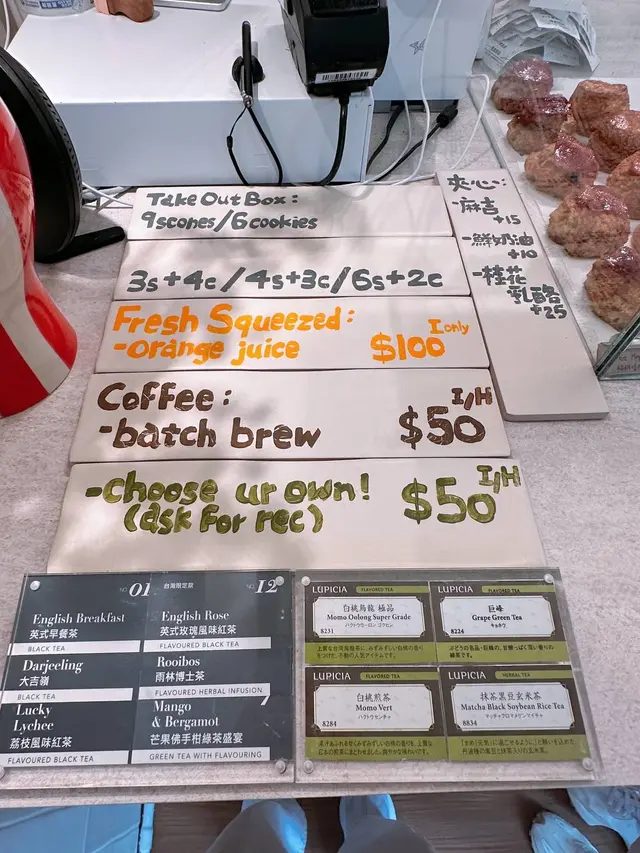 Take Out Box:
9scones/6cookies
3s+4c/4s+3c/6s+2c
Fresh Squeezed:
-orange juice
I only
$100
Coffee:
-batch brew
I/H
$50
-Choose ur own!
(ask for rec)
I/H
$50
夾心:
-麻吉
+15
-鮮奶油
+10
-桂花
乳酪
+25
NO. 01
English Breakfast
英式早餐茶
BLACK TEA
Darjeeling
大吉嶺
BLACK TEA
Lucky
Lychee
荔枝風味紅茶
FLAVOURED BLACK TEA
台灣限定款
NO. 12
English Rose
英式玫瑰風味紅茶
Rooibos
雨林博士茶
FLAVOURED HERBAL INFUSION
Mango
& Bergamot
芒果佛手柑綠茶盛宴
GREEN TEA WITH FLAVOURING
LUPICIA FLAVORED TEA
白桃烏龍 極品
Momo Oolong Super Grade
ハクトウウーロン ゴクヒン
8231
LUPICIA FLAVORED TEA
巨峰
Grape Green Tea
キョホウ
8224
LUPICIA FLAVORED TEA
白桃煎茶
Momo Vert
ハクトウセンチャ
8284
LUPICIA HERBAL TEA
抹茶黒豆玄米茶
Matcha Black Soybean Rice Tea
マッチャクロマメゲンマイチャ
8834